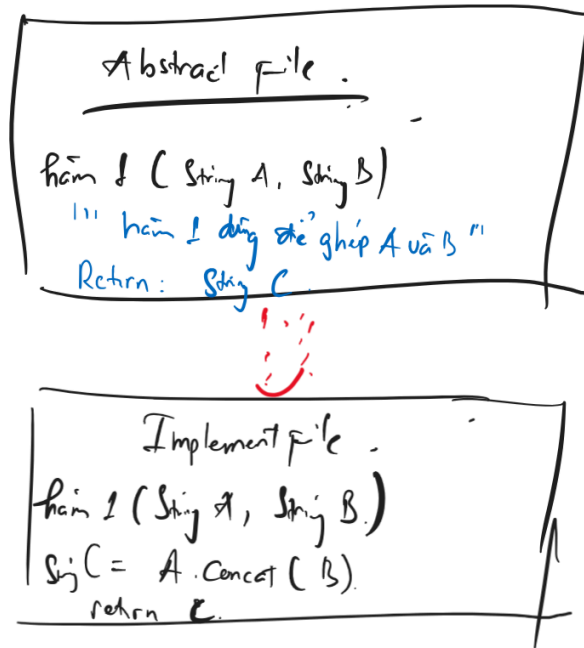 Abstract File.
hàm 1 (String A, String B)
""" hàm 1 dùng để ghép A và B "
Return: String C.
Implement File.
hàm 1 (String A, String B)
String C = A.Concat(B).
return C.